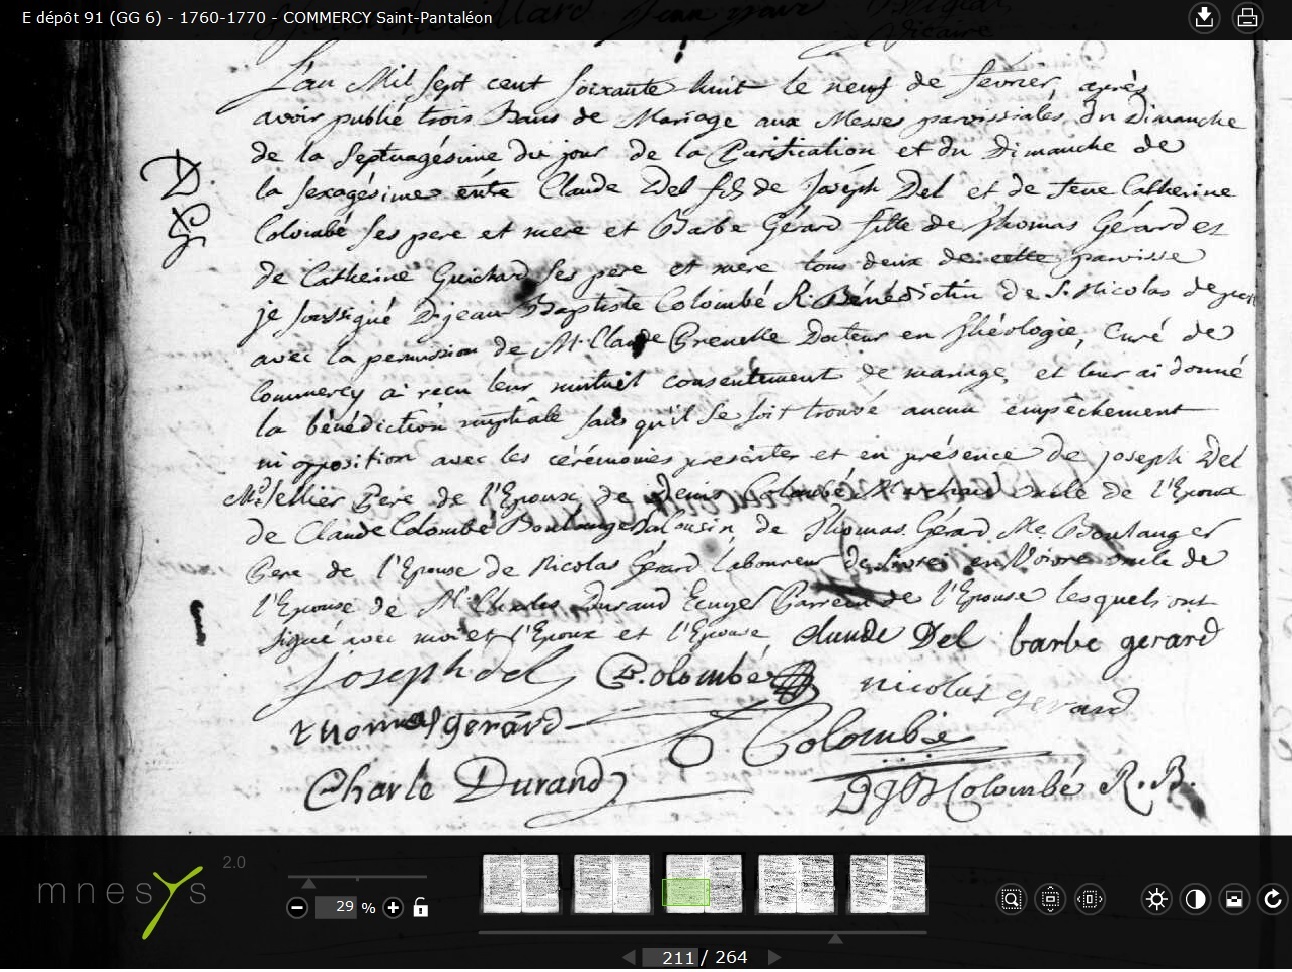 E dépôt 91 (GG 6) - 1760-1770 - COMMERCY Saint-Pantaléon
Vicaire
L'an Mil sept cent soixante huit le neuf de fevrier, après
avoir publié trois Bans de Mariage aux Messes paroissiales du Dimanche
de la Septuagésime du jour de la Purification et du Dimanche de
la sexagésime entre Claude Del fils de Joseph Del et de feue Catherine
Colombé ses pere et mere et Barbe Gérard fille de Thomas Gérard et
de Catherine Guichard ses pere et mere tous deux de cette paroisse
je soussigné D. jean Baptiste Colombé R. Bénédictin de S. Nicolas de port
avec la permission de Mr. Claude Grenelle Docteur en théologie, Curé de
Commercy ai reçu leur mutuel consentement de mariage, et leur ai donné
la bénédiction nuptiale sans qu'il se soit trouvé aucun empêchement
ni opposition avec les cérémonies prescrites et en présence de joseph Del
Md. Pere de l'Epoux de Denis Colombé oncle de l'Epoux
de Claude Colombé Boulanger cousin de Thomas Gérard Me. Boulanger
Pere de l'Epouse de Nicolas Gérard Laboureur en Voivre oncle de
l'Epouse de Mr. Charles Durand Ecuyer Parrein de l'Epouse lesquels ont
signé avec moi et l'Epoux et l'Epouse Claude Del barbe gerard
Joseph del D. Colombé nicolas gerard
thomas gerard C Colombé
Charle Durand DJB Colombé R. B.
mnesys 2.0
29 %
211 / 264